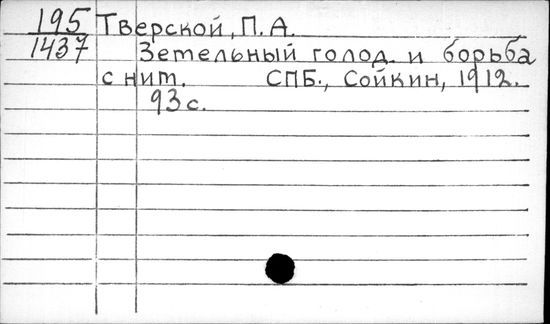 195 Тверской, П. А.
1437 Зетельный голод и борьба
с нит. СПБ., Сойкин, 1912.
93 с.